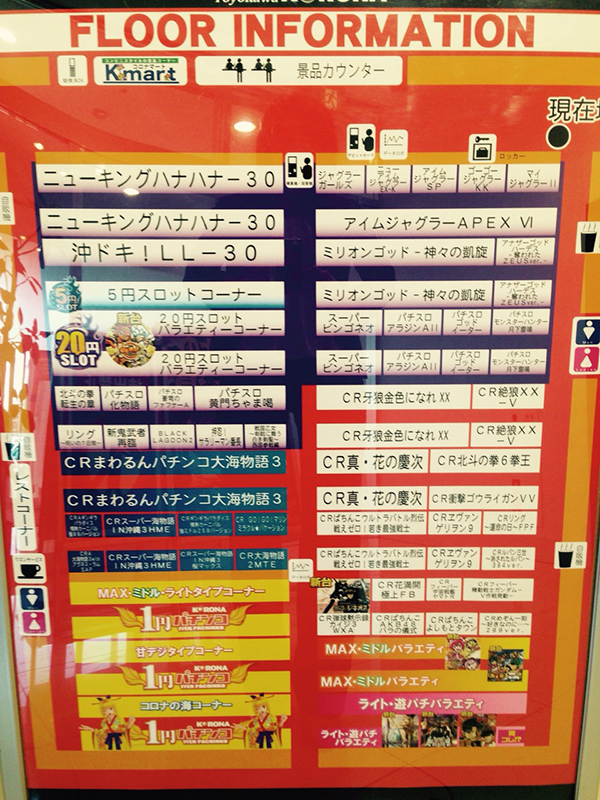 FLOOR INFORMATION
コンビニスタイルの景品コーナー
コロナマート
K•mart
景品カウンター
現在地
ロッカー
ニューキングハナハナー30
ジャグラーガールズ
アイムジャグラーSP
ゴーゴージャグラーKK
マイジャグラーII
ニューキングハナハナー30
アイムジャグラーAPEX VI
沖ドキ!LLー30
ミリオンゴッド-神々の凱旋
アナザーゴッドハーデス-奪われたZEUSver.-
5円SLOT
5円スロットコーナー
ミリオンゴッド-神々の凱旋
アナザーゴッドハーデス-奪われたZEUSver.-
20円SLOT
新台
20円スロットバラエティーコーナー
スーパービンゴネオ
パチスロアラジンAII
パチスロゴッドイーター
パチスロモンスターハンター月下雷鳴
20円スロットバラエティーコーナー
スーパービンゴネオ
パチスロアラジンAII
パチスロゴッドイーター
パチスロモンスターハンター月下雷鳴
北斗の拳転生の章
パチスロ化物語
パチスロ蒼穹のファフナー
パチスロ黄門ちゃま喝
CR牙狼金色になれXX
CR絶狼XX-V
リング
新鬼武者再臨
BLACK LAGOON2
押忍!サラリーマン番長
CR牙狼金色になれXX
CR絶狼XX-V
CRまわるんパチンコ大海物語3
CR真・花の慶次
CR北斗の拳6拳王
CRまわるんパチンコ大海物語3
CR真・花の慶次
CR衝撃ゴウライガンVV
CRスーパー海物語IN沖縄3HME
CRぱちんこウルトラバトル烈伝戦えゼロ!若き最強戦士
CRヱヴァンゲリヲン9
CRリング~運命の日~FPF
CRスーパー海物語IN沖縄3桜マックス
CR大海物語2MTE
CRぱちんこウルトラバトル烈伝戦えゼロ!若き最強戦士
CRヱヴァンゲリヲン9
レストコーナー
ワゴンサービス
自販機
自販機
自販機
MAX・ミドル・ライトタイプコーナー
新台
CR花満開極上FB
CRフィーバー機動戦士ガンダム-V作戦発動-
K•RONA
1円パチンコ
1YEN PACHINKO
CR弾球黙示録カイジ3WXA
CRぱちんこAKB48バラの儀式
CRぱちんこよしもとタウン
CRめぞん一刻~好きなのに…~299ver.
甘デジタイプコーナー
MAX・ミドルバラエティ
K•RONA
1円パチンコ
1YEN PACHINKO
MAX・ミドルバラエティ
コロナの海コーナー
ライト・遊パチバラエティ
K•RONA
1円パチンコ
1YEN PACHINKO
ライト・遊パチバラエティ